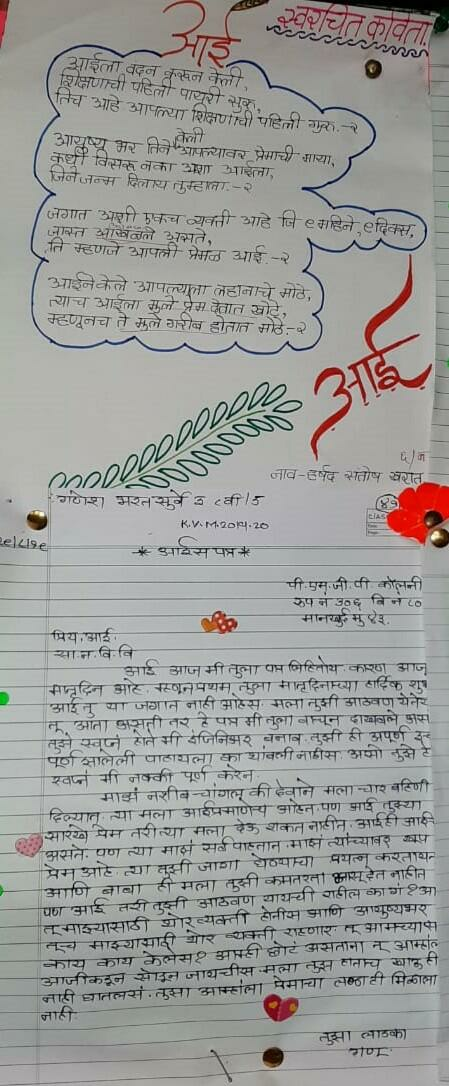 स्वरचित कविता
आई
आईला वंदन करून केली,
शिक्षणाची पहिली पायरी सुरू,
तिच आहे आपल्या शिक्षणाची पहिली गुरू.-२
आयुष्य भर तिने केली आपल्यावर प्रेमाची माया,
कधी विसरू नका अशा आईला,
जिने जन्म दिलाय तुम्हाला.-२
जगात अशी एकच व्यक्ती आहे जि ९ महिने, ९ दिवस,
जास्त ओळखले असते,
ति म्हणजे आपली प्रेमळ आई.-२
आईने केले आपल्याला लहानाचे मोठे,
त्याच आईला मुले प्रेम देतात खोटे,
म्हणूनच ते मुले गरीब होतात मोठे.-२
आई
नाव-हर्षद संतोष खरात
गणेश भरत सुर्वे इ ८ वी/5
K.V.M.2019.20
* आईस पत्र *
पी.एम.जी.पी. कोलनी
रुम नं ३०६ बि नं ८०
मानखुर्द मु ४३.
प्रिय, आई.
सा.न.वि.वि
आई आज मी तुला पत्र लिहितोय. कारण आज
मातृदिन आहे. सर्वप्रथम तुला मातृदिनाच्या हार्दिक शुभ
आई तु या जगात नाही आहेस. मला तुझी आठवण येते
तू आता असती तर हे पत्र मी तुला वाचून दाखवले अस
तुझे स्वप्न होते मी इंजिनिअर बनाव. तुझी ही अपूर्ण
पूर्ण झालेली पाहायला का थांबली नाहीस. असो तुझे हे
स्वप्न मी नक्की पूर्ण करेन.
माझं नशीब चांगल की देवाने मला चार बहिणी
दिल्यात. त्या मला आईप्रमाणेच आहेत. पण आई तुझ्या
सारखे प्रेम तरी त्या मला देऊ शकत नाहीत. आई ही आई
असते. पण त्या माझं सर्व पाहतात. माझं त्यांच्यावर खूप
प्रेम आहे. त्या तुझी जागा घेण्याचा प्रयत्न करतायत
आणि बाबा ही मला तुझी कमतरता भासू देत नाहीत
पण आई तरी तुझी आठवण यायची राहील का गं? आ
तू माझ्यासाठी थोर व्यक्ती होतीस आणि आयुष्यभर
तूच माझ्यासाठी थोर व्यक्ती राहणार. तू आमच्यास
काय काय केलेस? आम्ही छोटे असताना तू आम्हांल
आजीकडून सोडून जायचीस मला तुझ हातच खाऊ ही
नाही घातलसं. तुझा आम्हांला प्रेमाचा लळा ही मिळाला
नाही.
तुझा लाडका
गणू